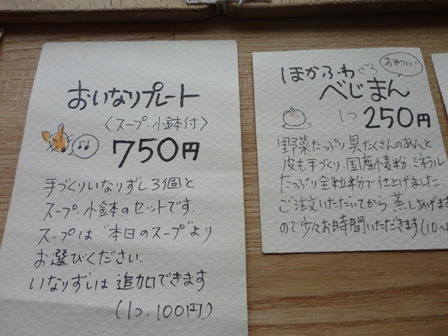 おいなりプレート
〈スープ・小鉢付〉
750円
手づくりいなりずし3個と
スープ・小鉢のセットです。
スープは"本日のスープ"より
お選びください。
いなりずしは追加できます
(1つ、100円)
ほかふわ
べじまん
おやつに!
1つ 250円
野菜たっぷり具だくさんのあんと
皮も手づくり。国産小麦粉、ミネラル
たっぷり全粒粉で仕上げました。
ご注文いただいてから蒸しあげます
ので少々お時間いただきます(10〜